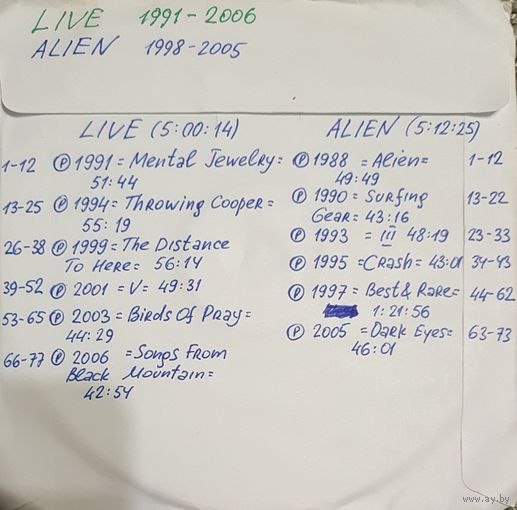 LIVE 1991-2006
ALIEN 1998-2005
LIVE (5:00:14)
1-12 Ⓟ 1991 = Mental Jewelry =
51:44
13-25 Ⓟ 1994 = Throwing Cooper =
55:19
26-38 Ⓟ 1999 = The Distance
To Here = 56:14
39-52 Ⓟ 2001 = V = 49:31
53-65 Ⓟ 2003 = Birds Of Pray =
44:29
66-77 Ⓟ 2006 = Songs From
Black Mountain =
42:54
ALIEN (5:12:25)
Ⓟ 1988 = Alien = 1-12
49:49
Ⓟ 1990 = Surfing 13-22
Gear = 43:16
Ⓟ 1993 = III 48:19 23-33
Ⓟ 1995 = Crash = 43:01 34-43
Ⓟ 1997 = Best & Rare = 44-62
1:21:56
Ⓟ 2005 = Dark Eyes = 63-73
46:01
www.ay.by